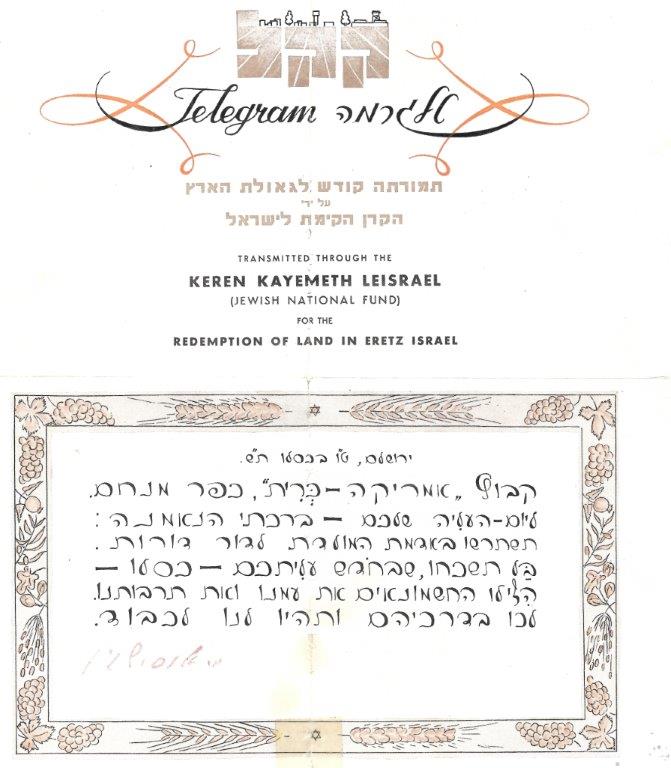 קקל
Telegram טלגרמה
תמורתה קודש לגאולת הארץ
על ידי
הקרן הקימת לישראל
TRANSMITTED THROUGH THE
KEREN KAYEMETH LEISRAEL
(JEWISH NATIONAL FUND)
FOR THE
REDEMPTION OF LAND IN ERETZ ISRAEL
ירושלים, ט"ו בכסלו ת"ש.
קבוץ „אמריקה – כפר מנחם.
ליום-העליה שלכם – ברכתי הנאמנה:
תשתרשו באדמת המולדת לדור דורות.
בַּל תשכחו, שבחֹדש עליתכם – כסלו –
הִצילו החשמונאים את עמנו ואת תרבותנו.
לכו בדרכיהם ותהיו לנו לכבוד.
אוסישקין